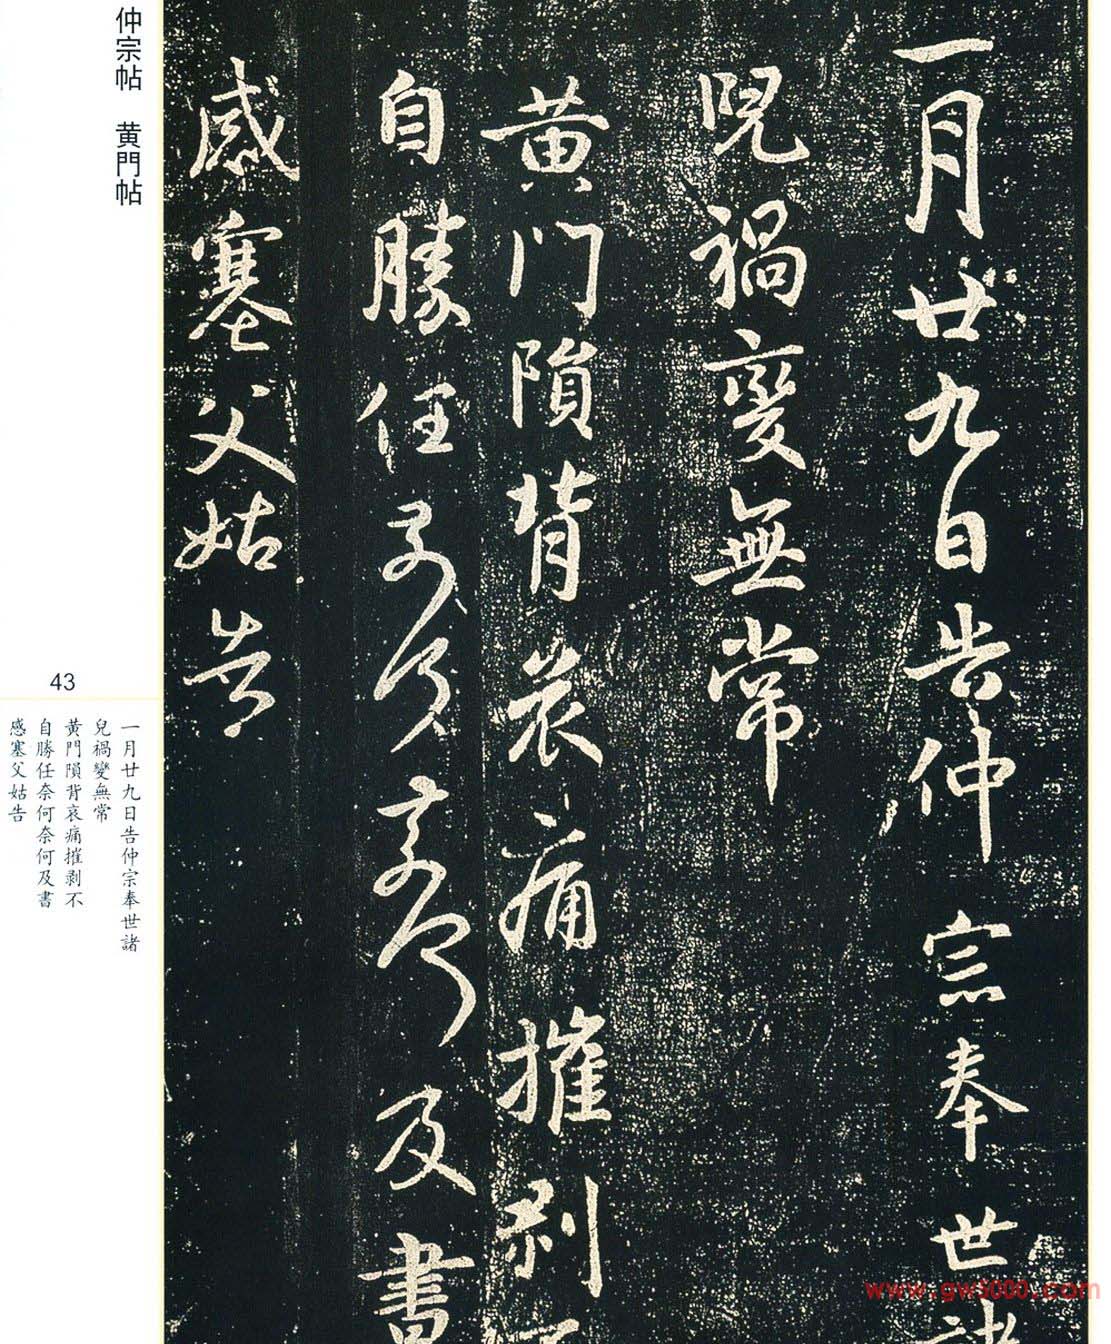 一月廿九日告仲宗奉世諸
兒禍變無常
黃門隕背哀痛摧剥不
自勝任奈何奈何及書
感塞父姑告
仲宗帖　黄門帖
43
一月廿九日告仲宗奉世諸
兒禍變無常
黃門隕背哀痛摧剥不
自勝任奈何奈何及書
感塞父姑告
www.gw5000.com